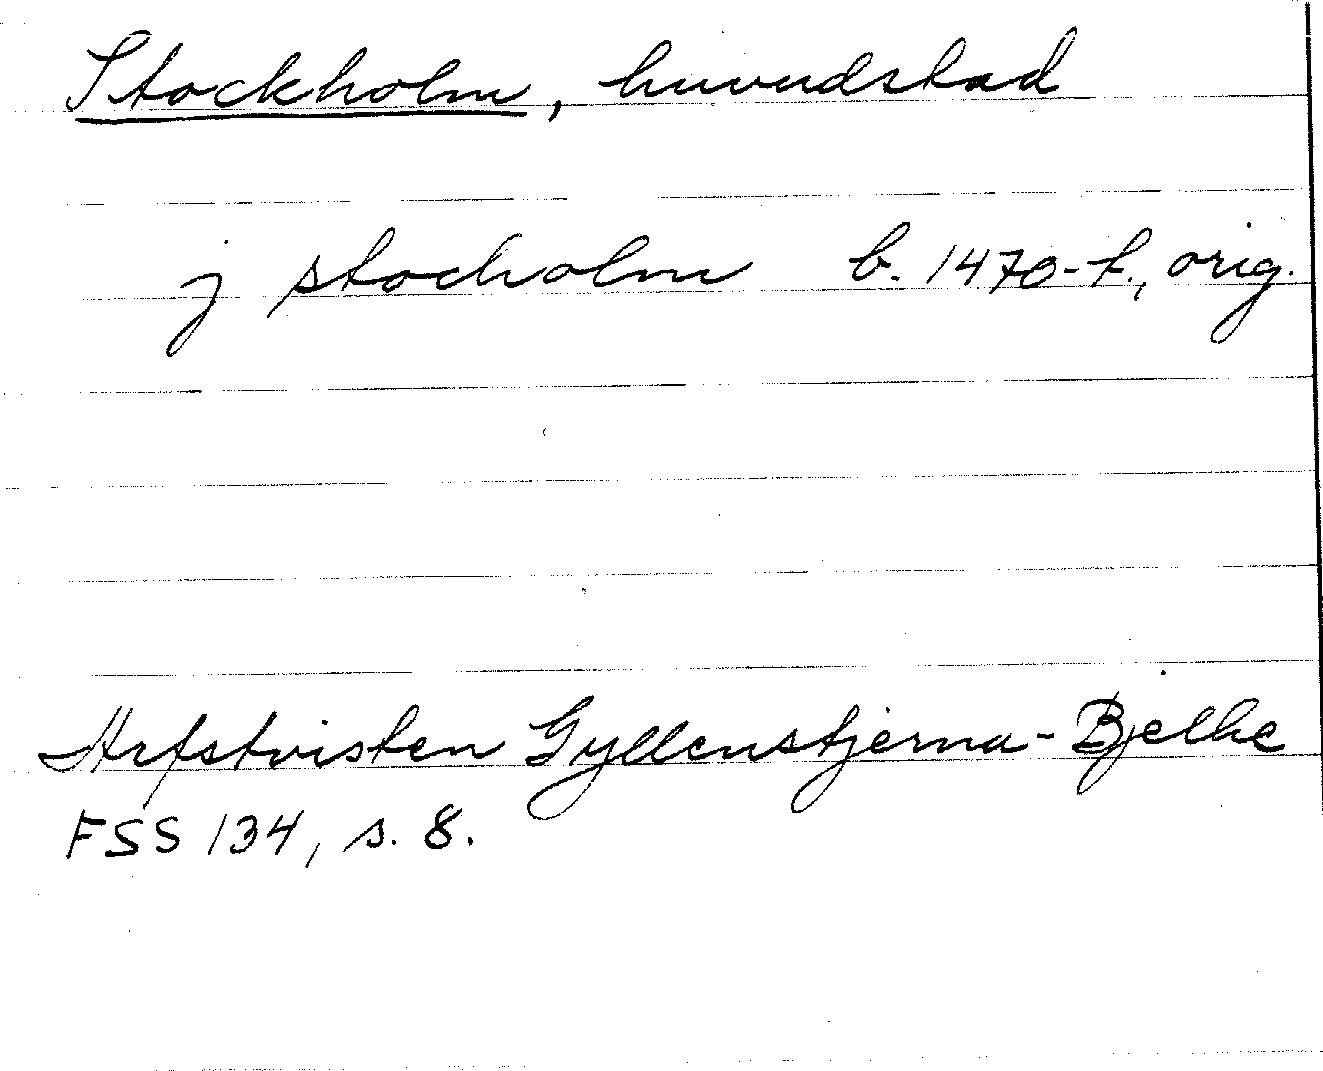 Stockholm, huvudstad
j stocholm b. 1470-t., orig.
Arfstvisten Gyllenstjerna-Bjelke
FSS 134, s. 8.